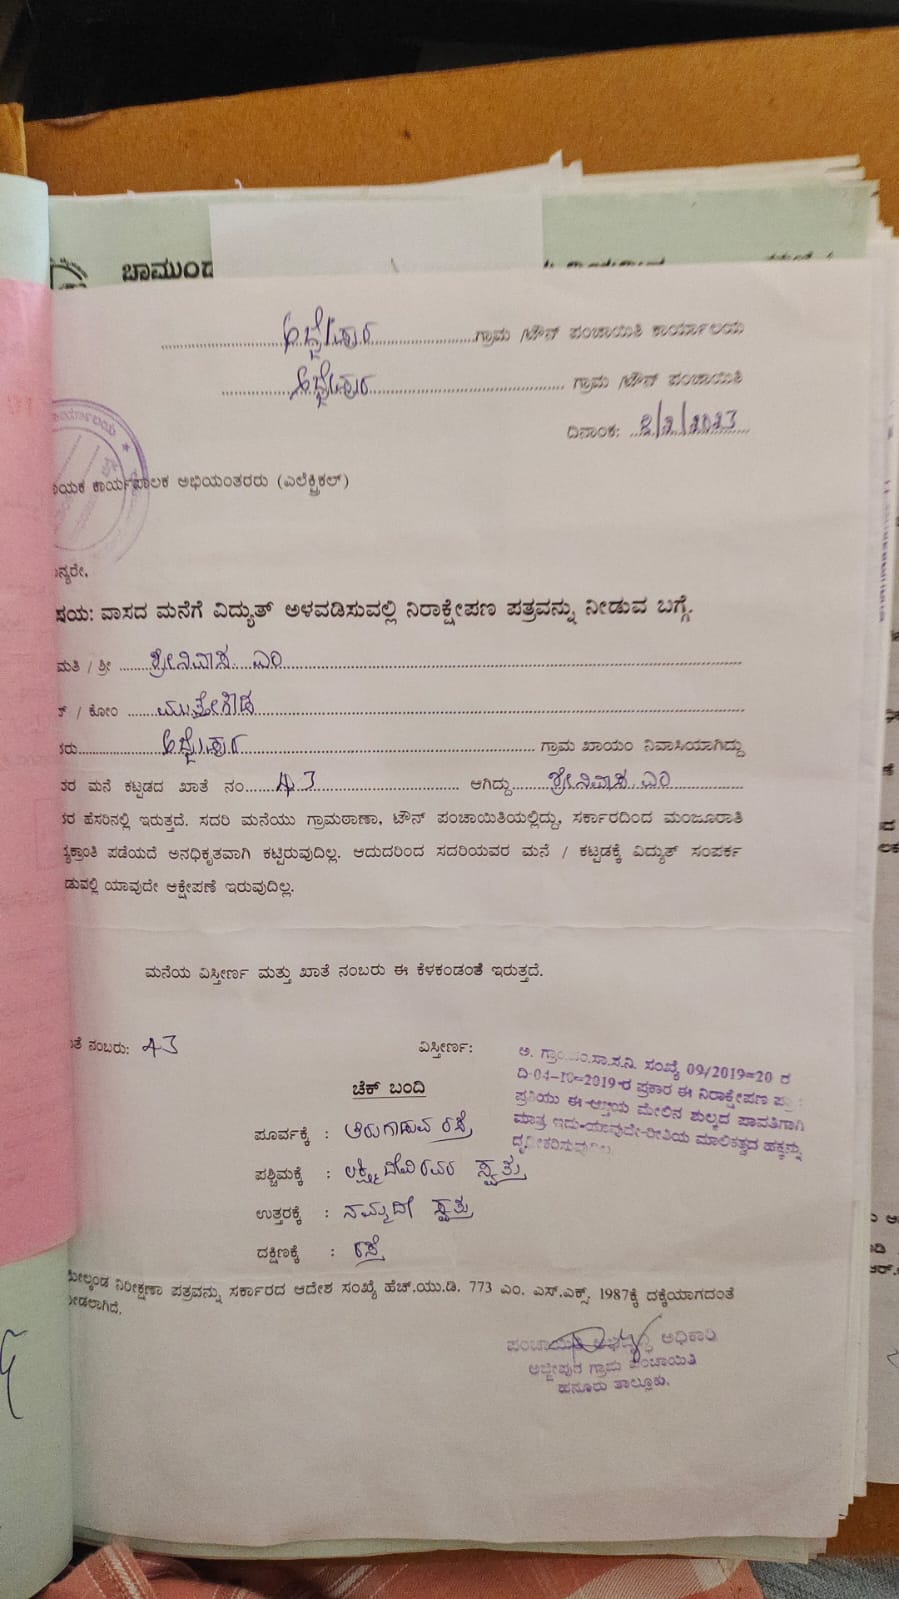 ಚಾಮುಂಡ
ಅಜ್ಜೀಪುರ ಗ್ರಾಮ /ಟೌನ್ ಪಂಚಾಯಿತಿ ಕಾರ್ಯಾಲಯ
ಅಜ್ಜೀಪುರ ಗ್ರಾಮ /ಟೌನ್ ಪಂಚಾಯಿತಿ
ದಿನಾಂಕ: 8/2/2023
ಾಯಕ ಕಾರ್ಯಪಾಲಕ ಅಭಿಯಂತರರು (ಎಲೆಕ್ಟ್ರಿಕಲ್)
ನ್ಯರೇ,
ಷಯ: ವಾಸದ ಮನೆಗೆ ವಿದ್ಯುತ್ ಅಳವಡಿಸುವಲ್ಲಿ ನಿರಾಕ್ಷೇಪಣ ಪತ್ರವನ್ನು ನೀಡುವ ಬಗ್ಗೆ.
ಮತಿ / ಶ್ರೀ ಶ್ರೀನಿವಾಸ ಎಂ
/ ಕೋಂ ಮುತ್ತೇಗೌಡ
ರು ಅಜ್ಜೀಪುರ ಗ್ರಾಮ ಖಾಯಂ ನಿವಾಸಿಯಾಗಿದ್ದು
ರ ಮನೆ ಕಟ್ಟಡದ ಖಾತೆ ನಂ. 43 ಆಗಿದ್ದು ಶ್ರೀನಿವಾಸ ಎಂ
ರ ಹೆಸರಿನಲ್ಲಿ ಇರುತ್ತದೆ. ಸದರಿ ಮನೆಯು ಗ್ರಾಮಠಾಣಾ, ಟೌನ್ ಪಂಚಾಯಿತಿಯಲ್ಲಿದ್ದು, ಸರ್ಕಾರದಿಂದ ಮಂಜೂರಾತಿ
ಕ್ರಾಂತಿ ಪಡೆಯದೆ ಅನಧಿಕೃತವಾಗಿ ಕಟ್ಟಿರುವುದಿಲ್ಲ. ಆದುದರಿಂದ ಸದರಿಯವರ ಮನೆ / ಕಟ್ಟಡಕ್ಕೆ ವಿದ್ಯುತ್ ಸಂಪರ್ಕ
ಡುವಲ್ಲಿ ಯಾವುದೇ ಆಕ್ಷೇಪಣೆ ಇರುವುದಿಲ್ಲ.
ಮನೆಯ ವಿಸ್ತೀರ್ಣ ಮತ್ತು ಖಾತೆ ನಂಬರು ಈ ಕೆಳಕಂಡಂತೆ ಇರುತ್ತದೆ.
ತೆ ನಂಬರು: 43 ವಿಸ್ತೀರ್ಣ:
ಅ. ಗ್ರಾ.ಪಂ.ಸಾ.ಸ.ನಿ. ಸಂಖ್ಯೆ 09/2019=20 ರ
ದಿ-04-10=2019-ರ ಪ್ರಕಾರ ಈ ನಿರಾಕ್ಷೇಪಣ ಪತ್ರ
ಪ್ರತಿಯು ಈ ಆಸ್ತಿಯ ಮೇಲಿನ ಶುಲ್ಕದ ಪಾವತಿಗಾಗಿ
ಮಾತ್ರ ಇದು-ಯಾವುದೇ-ರೀತಿಯ ಮಾಲಿಕತ್ವದ ಹಕ್ಕನ್ನು
ದೃಢೀಕರಿಸುವುದಿಲ್ಲ.
ಚೆಕ್ ಬಂದಿ
ಪೂರ್ವಕ್ಕೆ : ತಿರುಗಾಡುವ ರಸ್ತೆ
ಪಶ್ಚಿಮಕ್ಕೆ : ಲಕ್ಷ್ಮೀದೇವಿರವರ ಸ್ವತ್ತು
ಉತ್ತರಕ್ಕೆ : ನಮ್ಮದೇ ಸ್ವತ್ತು
ದಕ್ಷಿಣಕ್ಕೆ : ರಸ್ತೆ
ಮೇಲ್ಕಂಡ ನಿರೀಕ್ಷಣಾ ಪತ್ರವನ್ನು ಸರ್ಕಾರದ ಆದೇಶ ಸಂಖ್ಯೆ ಹೆಚ್.ಯು.ಡಿ. 773 ಎಂ. ಎಸ್.ಎಕ್ಸ್. 1987ಕ್ಕೆ ದಕ್ಕೆಯಾಗದಂತೆ
ೀಡಲಾಗಿದೆ.
ಪಂಚಾಯಿತಿ ಅಭಿವೃದ್ಧಿ ಅಧಿಕಾರಿ
ಅಜ್ಜೀಪುರ ಗ್ರಾಮ ಪಂಚಾಯಿತಿ
ಹನೂರು ತಾಲ್ಲೂಕು.